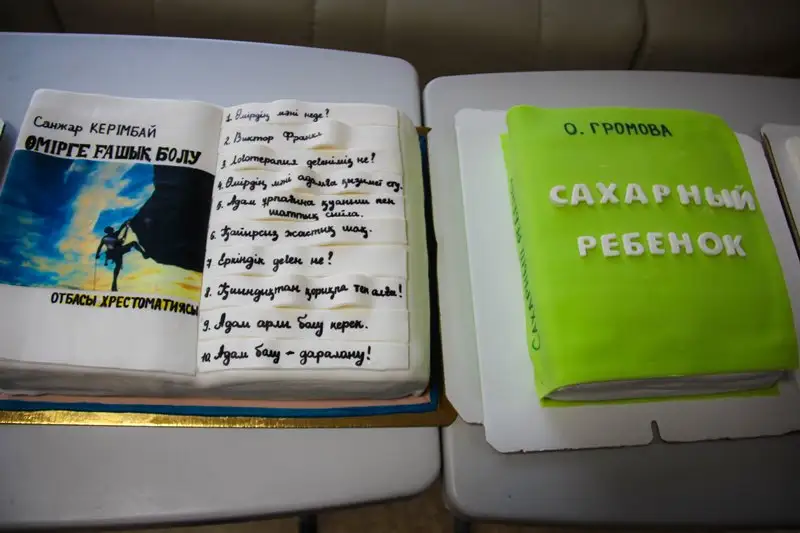 Санжар КЕРІМБАЙ
ӨМІРГЕ ҒАШЫҚ БОЛУ
ОТБАСЫ ХРЕСТОМАТИЯСЫ
1. Өмірдің мәні неде?
2. Виктор Франкл
3. Логотерапия дегеніміз не?
4. Өмірдің мәні адамға қызмет ету.
5. Адам ұрпағына қуаныш пен
шаттық сыйла.
6. Қайырсыз жастық шақ.
7. Еркіндік деген не?
8. Қиындықтан қорықпа тек алға!
9. Адам арлы болу керек.
10. Адам болу - даралану!
О. ГРОМОВА
САХАРНЫЙ
РЕБЕНОК
САХАРНЫЙ